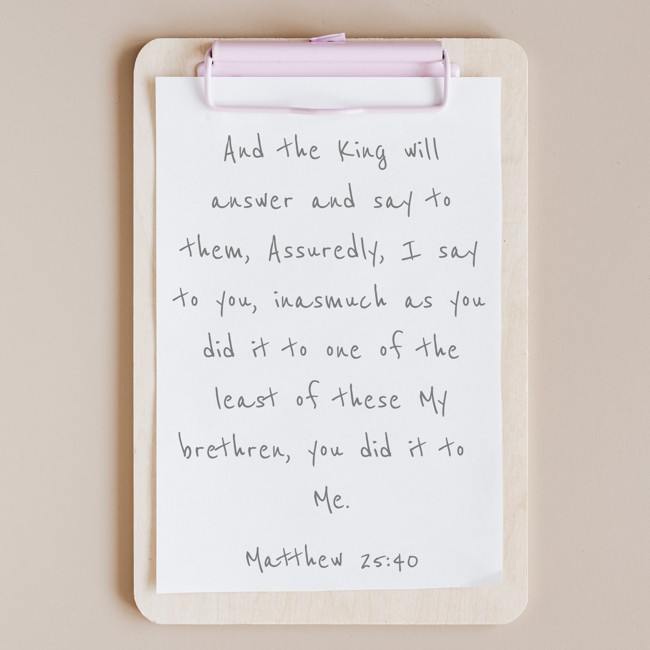 And the King will
answer and say to
them, Assuredly, I say
to you, inasmuch as you
did it to one of the
least of these My
brethren, you did it to
Me.
Matthew 25:40